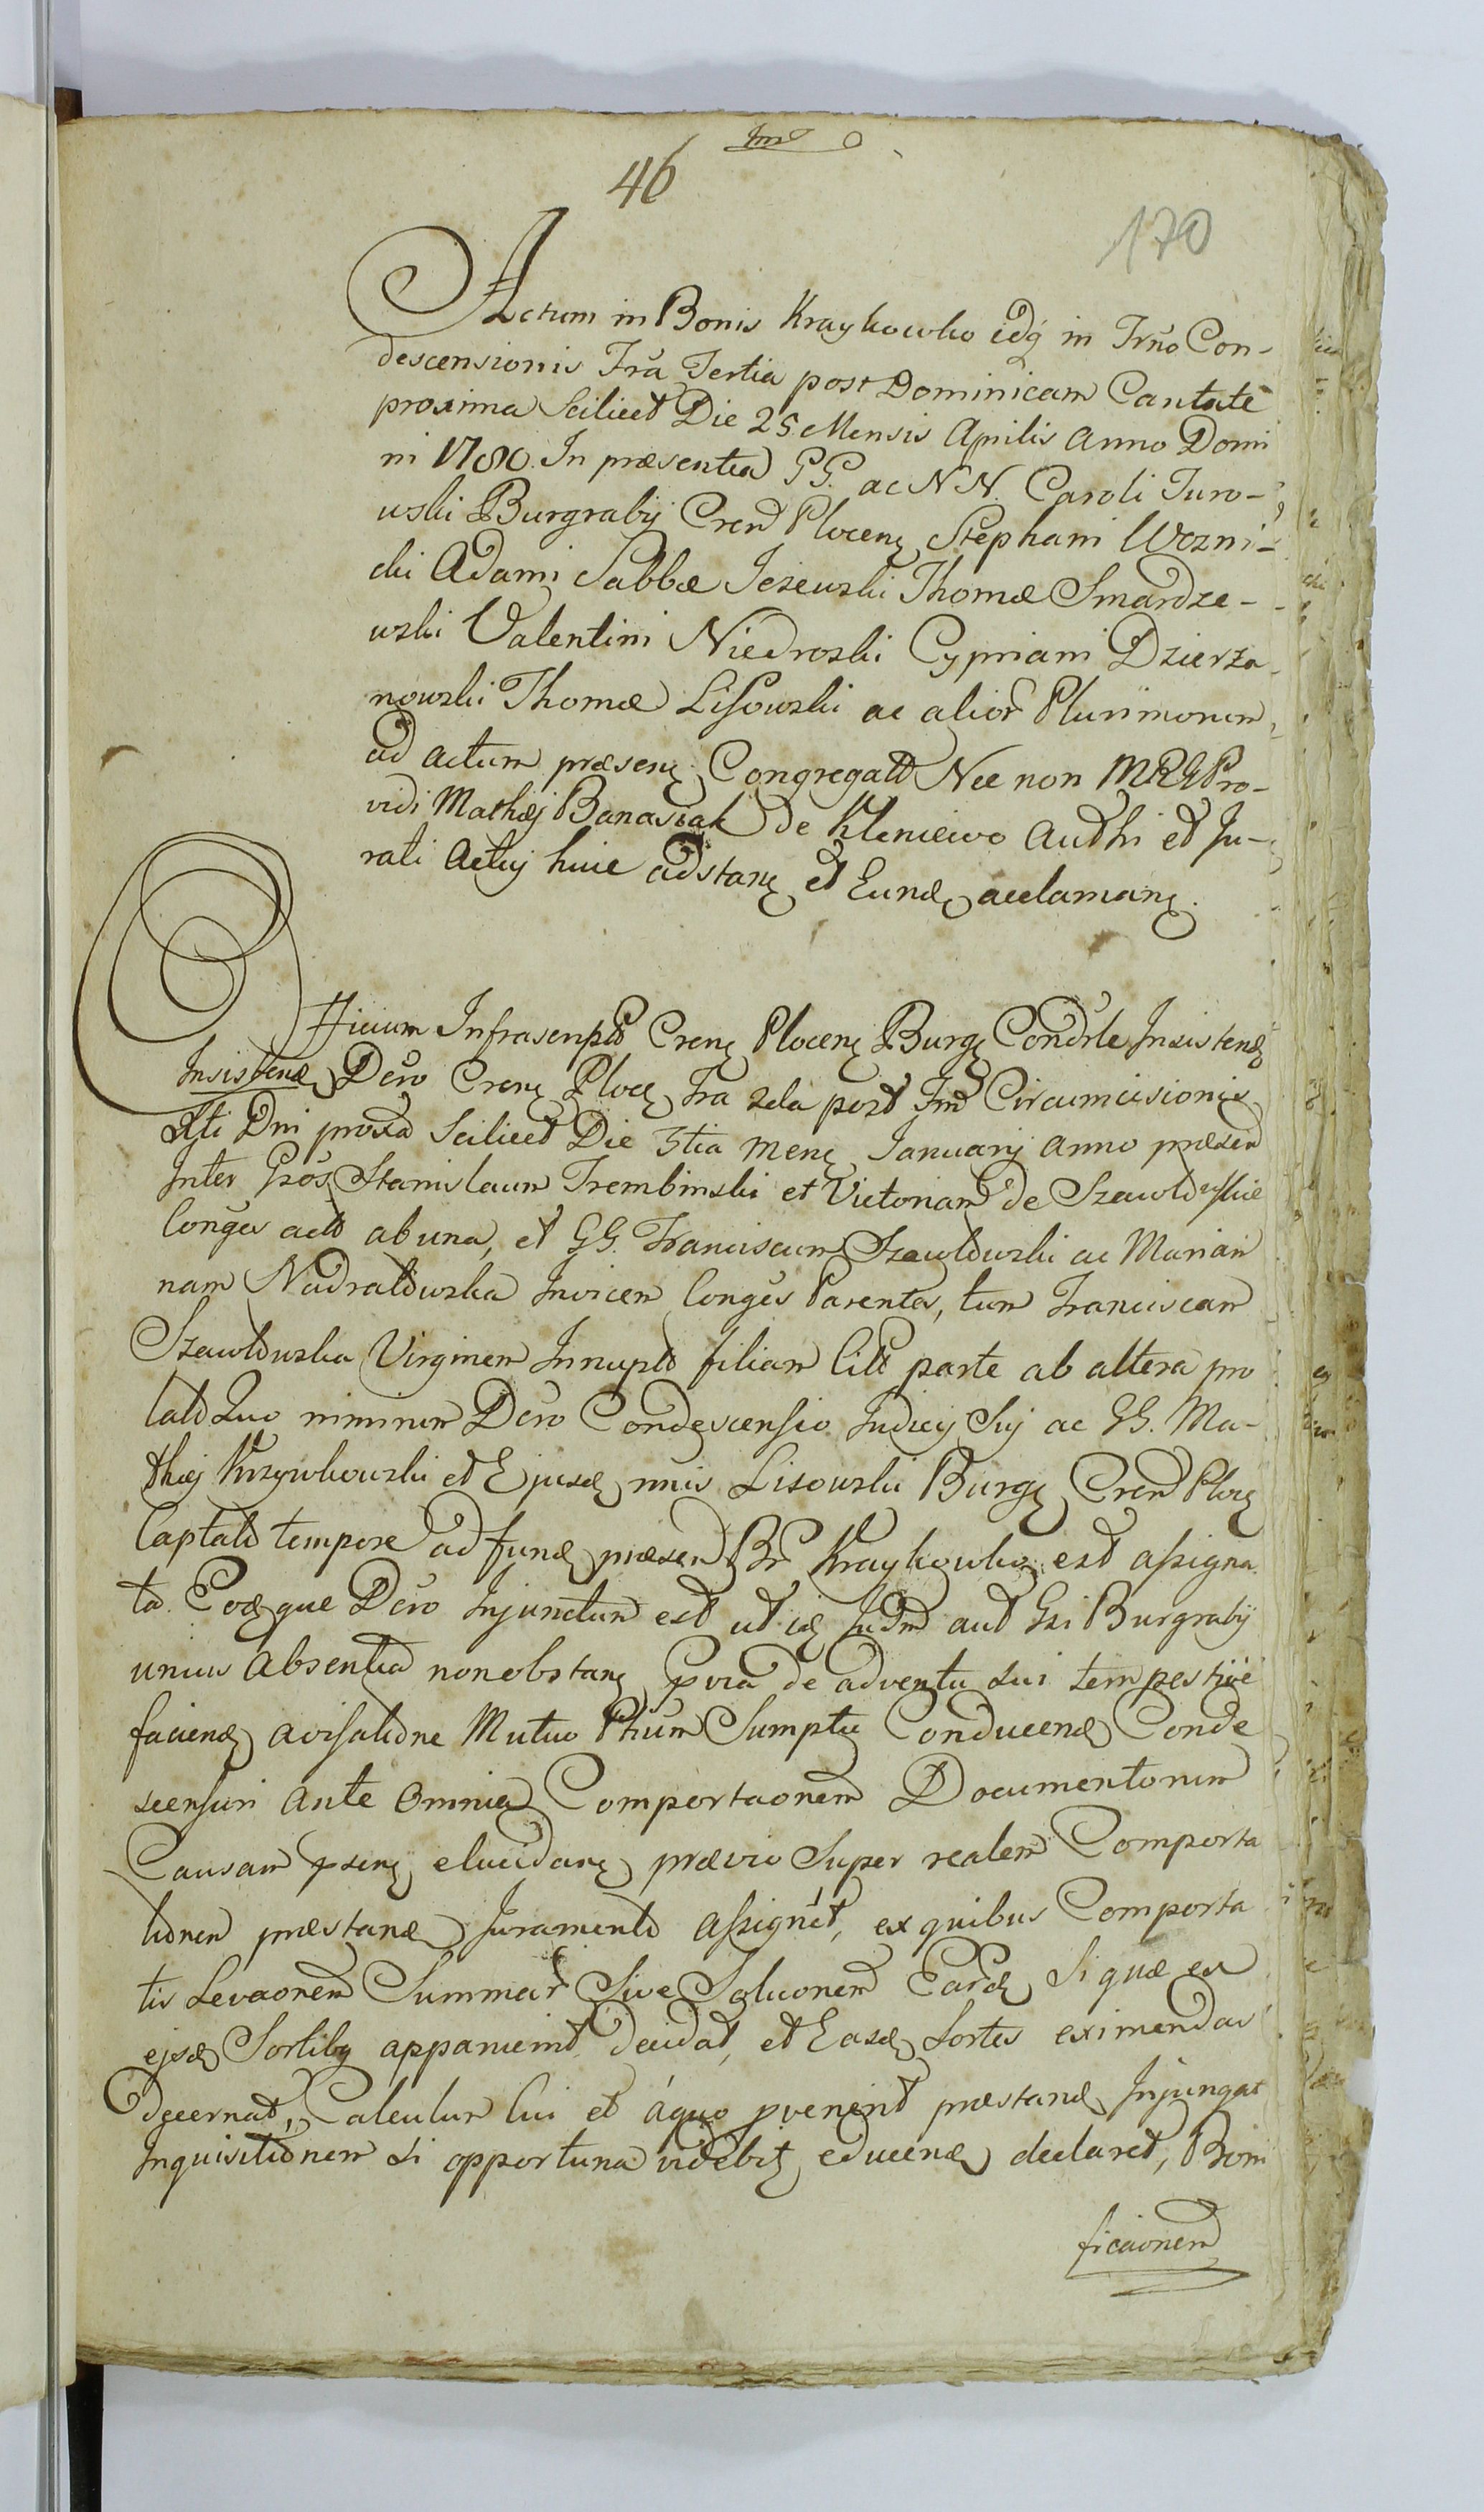 46
170
Actum in Bonis Kraykowko idq in Trno Con-
descensionis Fra Tertia post Dominicam Cantate
proxima Scilicet Die 25 Mensis Aprilis Anno Domi
ni 1780. In præsentia GG. ac NN. Caroli Turo-
wski Burgrabij Cren Plocen Stephani Wozni-
cki Adami Sabbæ Jezewski Thomæ Smardze-
wski Valentini Niedroski Cypriani Dzierza-
nowski Thomæ Lisowski ac alior Plurimorum
ad actum præsen Congregat Nec non MRG Pro-
vidi Mathæj Banasiak de Kleniewo Authi et Ju-
rati Actuj huic adstan et Eund acclaman.
Officium Infrascript Cren Plocen Burg Condrle Insistend
Insistend Dcro Cren Ploc Fra 2da post Fm Circumcisionis
Xti Dni proxa Scilicet Die 3tia Mens Januarij anno præsen
Inter Gsos Stanislaum Trembinski et Victoriam de Szawlowskie
Conges act ab una, et GG. Franciscum Szawlowski ac Marian
nam Nadratowska Invicem Conges Parentes, tum Franciscam
Szawlowska Virginem Innupt filiam Cit parte ab altera pro
lat Quo nimirum Dcro Condescensio Judicij Sij ac GG. Ma-
thæj Krzywkowski et Ejusd nnis Lisowski Burg Cren Ploc
Captat tempore ad fund præsen Br Kraykowko est assigna
ta. Eodque Dcro Injunctum est ut id Judm aut Gsi Burgrabij
unius Absentia non obstan pvia de adventu sui tempestive
faciend avisatione Mutuo Ptium Sumptu Conducend Conde
scensuri ante Omnia Comportaonem Documentorum
Causam psen elucidan prævio Super realem Comporta
tionem præstand Juramento assignet, ex quibus Comporta
tis Levaonem Summar Sive Soluonem Eard Si quæ ex
ejsd Sortibq apparuerint decidat, et Easd Sortes eximendas
decernat, Calculum Cui et a quo pvenerit præstand Injungat
Inquisitionem si opportuna videbit educend declaret, Boni
ficaonem